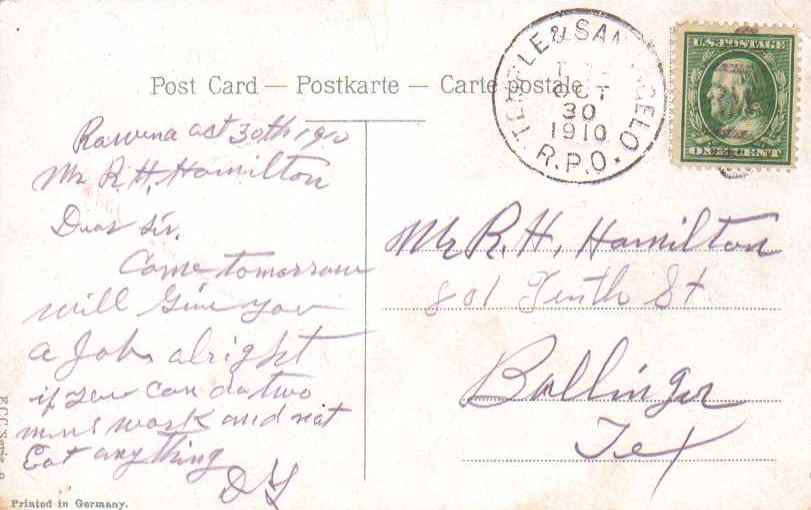 Post Card — Postkarte — Carte postale
TEMPLE & SAN ANGELO
OCT
30
1910
R.P.O.
U.S. POSTAGE
ONE CENT
Rowena oct 30th 1910
Mr R. H, Hamilton
Dear Sir.
Come tomorrow
will Give you
a Job alright
if you can do two
mens work and not
Eat anything
Mr R. H, Hamilton
801 Tenth St
Ballinger
Tex
Printed in Germany.